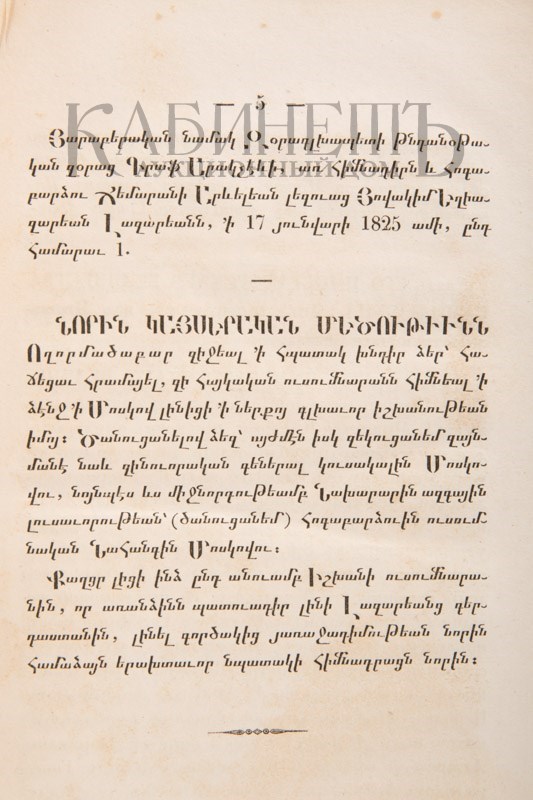 — 5 —
КАБИНЕТЪ
АУКЦИОННЫЙ ДОМ
Յարաբերական նամակ Զօրագլխապետի Թնդանօթա-
կան զօրաց Գրաֆ Արակչէեւի, առ Հիմնադիրն և Հոգա-
բարձու Ճեմարանի Արևելեան լեզուաց Յովակիմ Եղիա-
զարեան Լազարեանն, ՛ի 17 յունվարի 1825 ամի, ընդ
Համարաւ 1.
—
ՆՈՐԻՆ ԿԱՅՍԵՐԱԿԱՆ ՄԵԾՈՒԹԻՒՆՆ
Ողորմածաբար զիջեալ ՛ի Հպատակ խնդիր ձեր՝ Հա-
ճեցաւ Հրամայել, զի Հայկական ուսումնարանն Հիմնեալ ՛ի
ձէնջ ՛ի Մոսկով լինիցի ՛ի ներքոյ գլխաւոր իշխանութեան
իմոյ։ Ծանուցանելով ձեզ՝ այժմէն իսկ զեկուցանեմ զայն-
մանէ նաև զինուորական գեներալ կուսակալին Մոսկո-
վու, նոյնպէս ևս միջնորդութեամբ Նախարարին ազգային
լուսաւորութեան՝ (ծանուցանեմ) Հոգաբարձուին ուսում-
նական Նահանգին Մոսկովու։
Քաղցր լիցի ինձ ընդ անուամբ Իշխանի ուսումնարա-
նին, որ առանձինն պատուադիր լինի Լազարեանց գեր-
դաստանին, լինել գործակից յառաջադիմութեան նորին
Համաձայն երախտաւոր նպատակի Հիմնադրացն նորին։